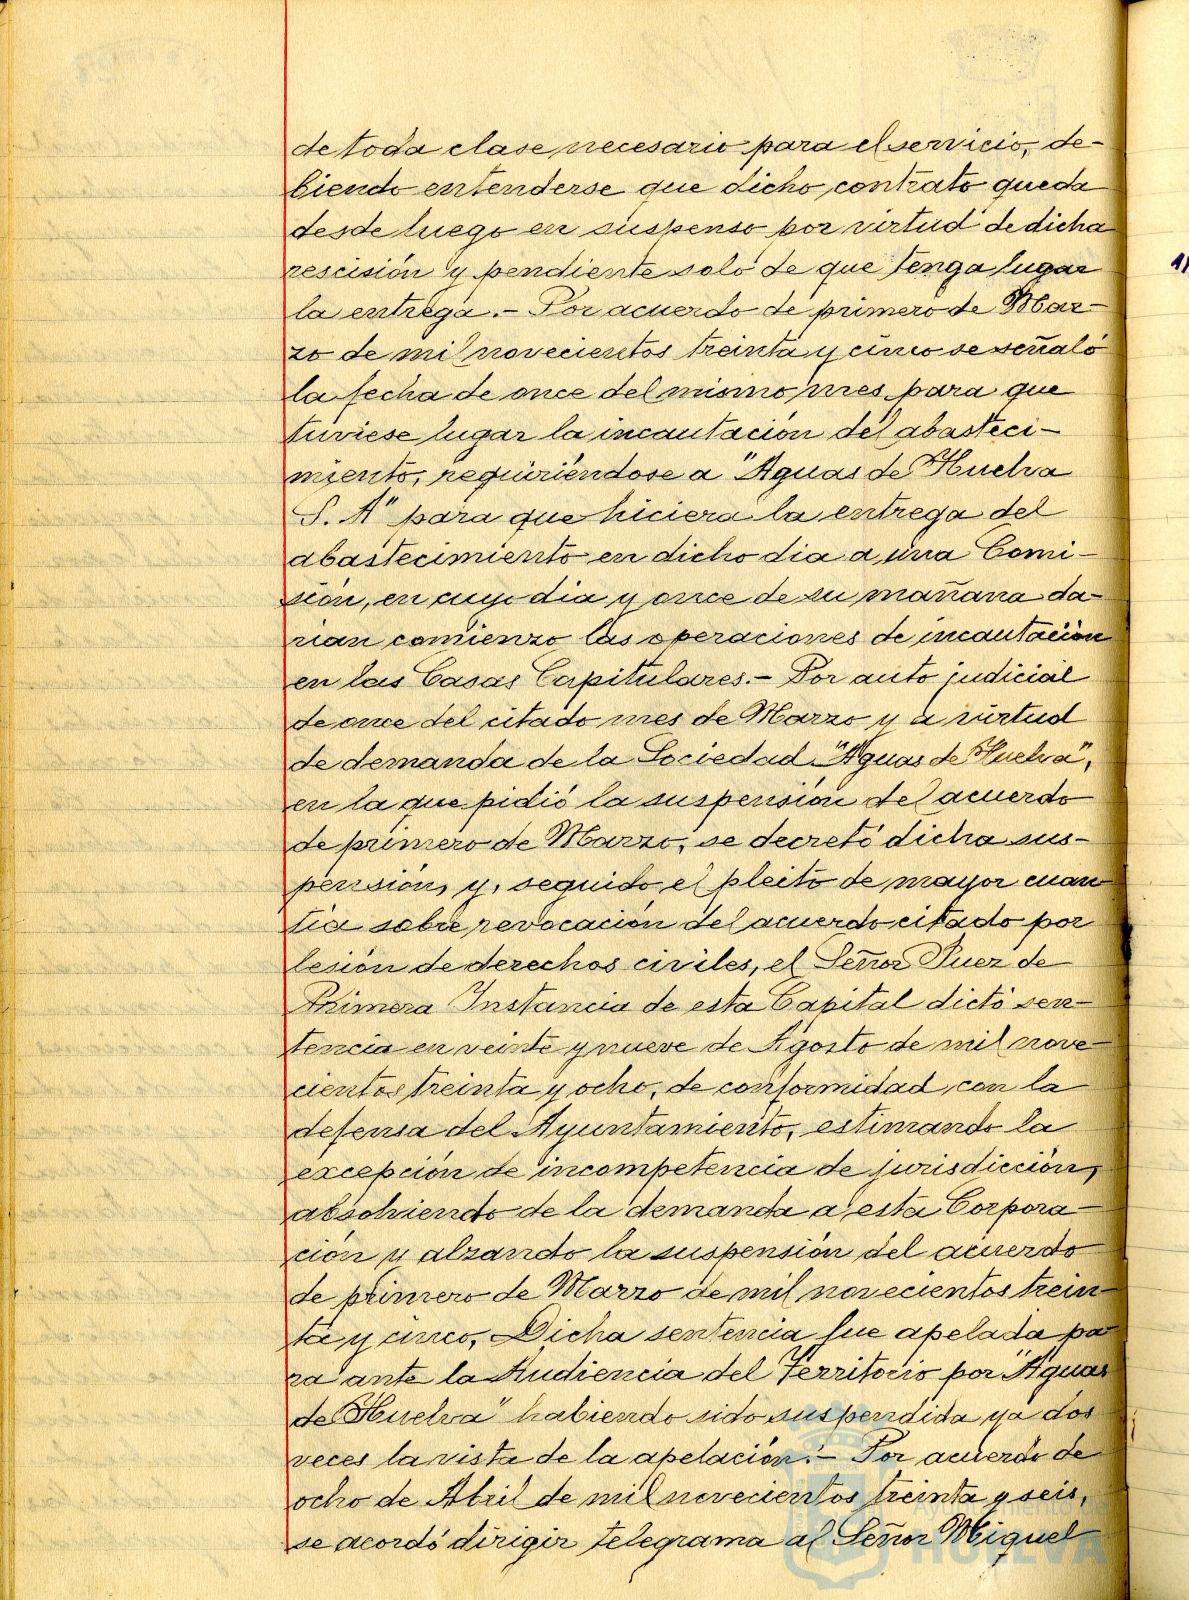 de toda clase necesario para el servicio, de-
biendo entenderse que dicho contrato queda
desde luego en suspenso por virtud de dicha
rescisión y pendiente solo de que tenga lugar
la entrega.- Por acuerdo de primero de Mar-
zo de mil novecientos treinta y cinco se señaló
la fecha de once del mismo mes para que
tuviese lugar la incautación del abasteci-
miento, requiriéndose a "Aguas de Huelva
S. A" para que hiciera la entrega del
abastecimiento en dicho dia a una Comi-
sión, en cuyo dia y once de su mañana da-
rian comienzo las operaciones de incautación
en las Casas Capitulares.- Por auto judicial
de once del citado mes de Marzo y a virtud
de demanda de la Sociedad "Aguas de Huelva",
en la que pidió la suspensión del acuerdo
de primero de Marzo, se decretó dicha sus-
pensión, y, seguido el pleito de mayor cuan-
tia sobre revocación del acuerdo citado por
lesión de derechos civiles, el Señor Juez de
Primera Instancia de esta Capital dictó sen-
tencia en veinte y nueve de Agosto de mil nove-
cientos treinta y ocho, de conformidad con la
defensa del Ayuntamiento, estimando la
excepción de incompetencia de jurisdicción,
absolviendo de la demanda a esta Corpora-
ción y alzando la suspensión del acuerdo
de primero de Marzo de mil novecientos trein-
ta y cinco, Dicha sentencia fue apelada pa-
ra ante la Audiencia del Territorio por "Aguas
de Huelva" habiendo sido suspendida ya dos
veces la vista de la apelación.- Por acuerdo de
ocho de Abril de mil novecientos treinta y seis,
se acordó dirigir telegrama al Señor Miguel
Ayuntamiento de
HUELVA